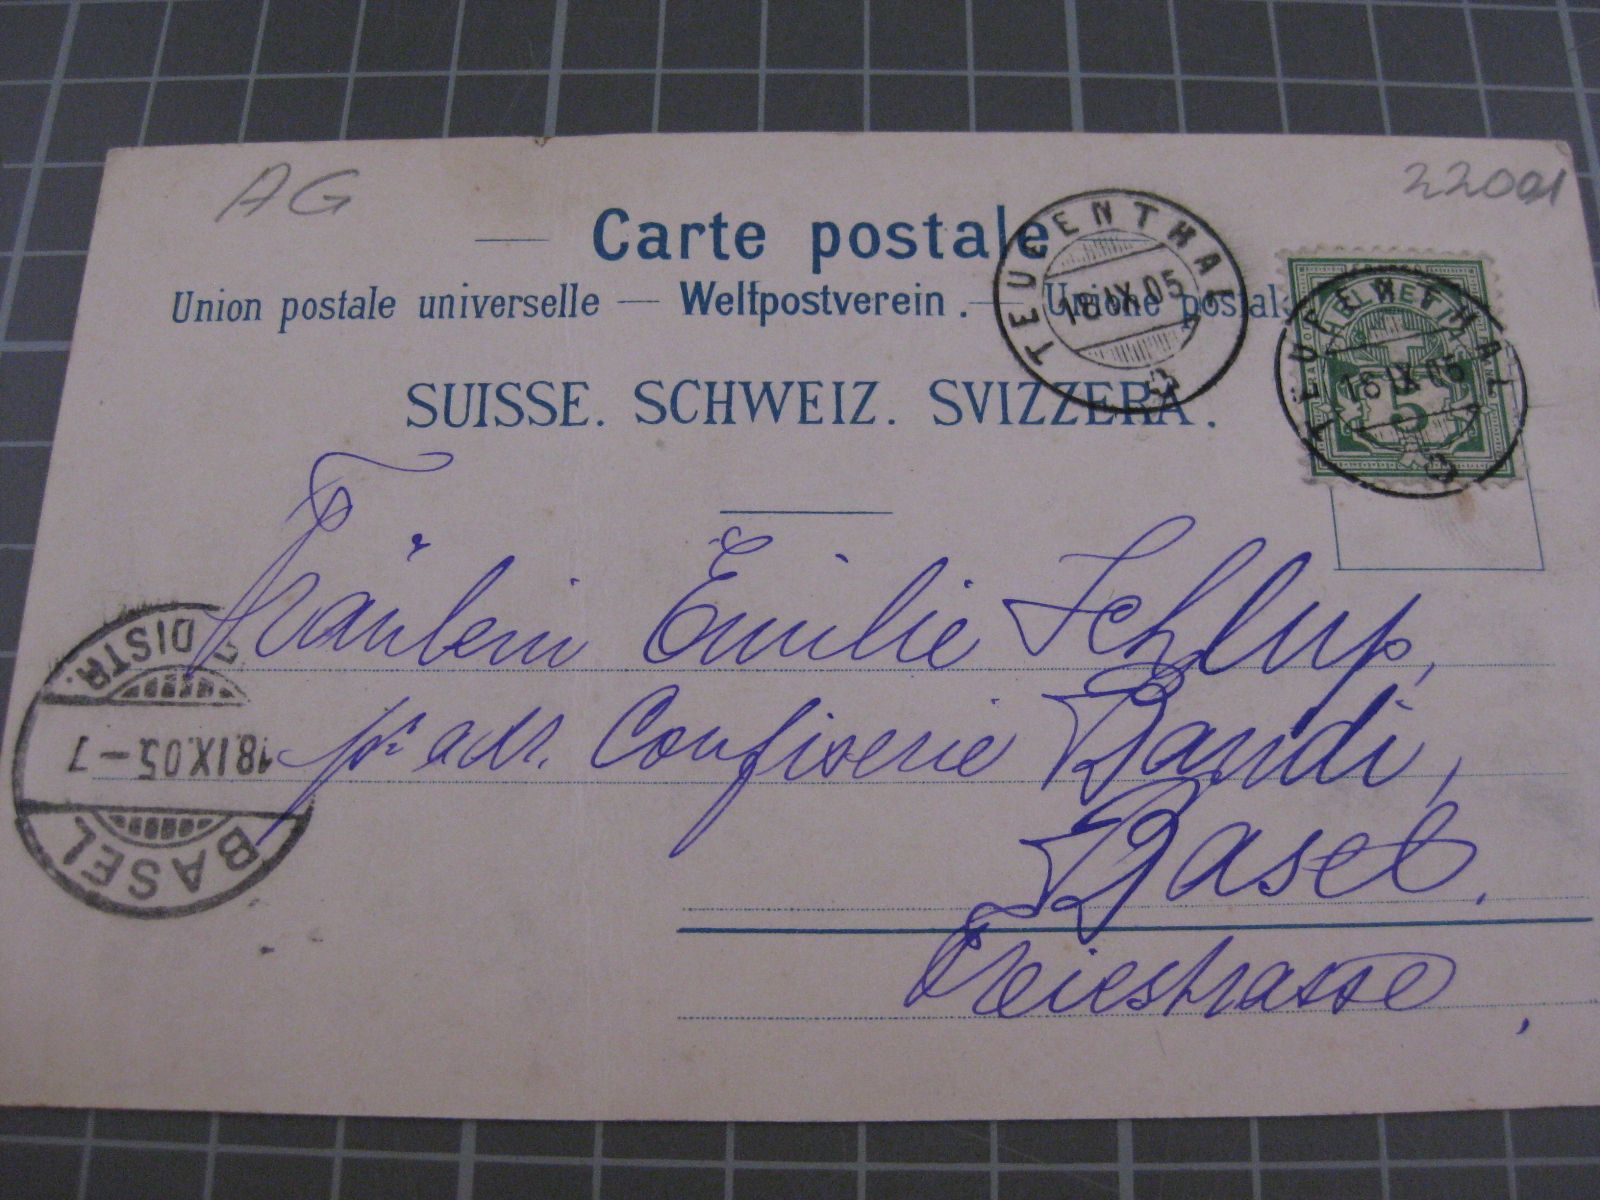 AG
22001
Carte postale
Union postale universelle — Weltpostverein. — Unione postale
SUISSE. SCHWEIZ. SVIZZERA.
TEUFENTHAL
18.IX.05
HELVETIA
5
TEUFENTHAL
18.IX.05
Fräulein Emilie Schlup,
pr. adr. Confiserie Bandi,
Basel.
Freiestrasse,
BASEL
18.IX.05.-7
DISTR.